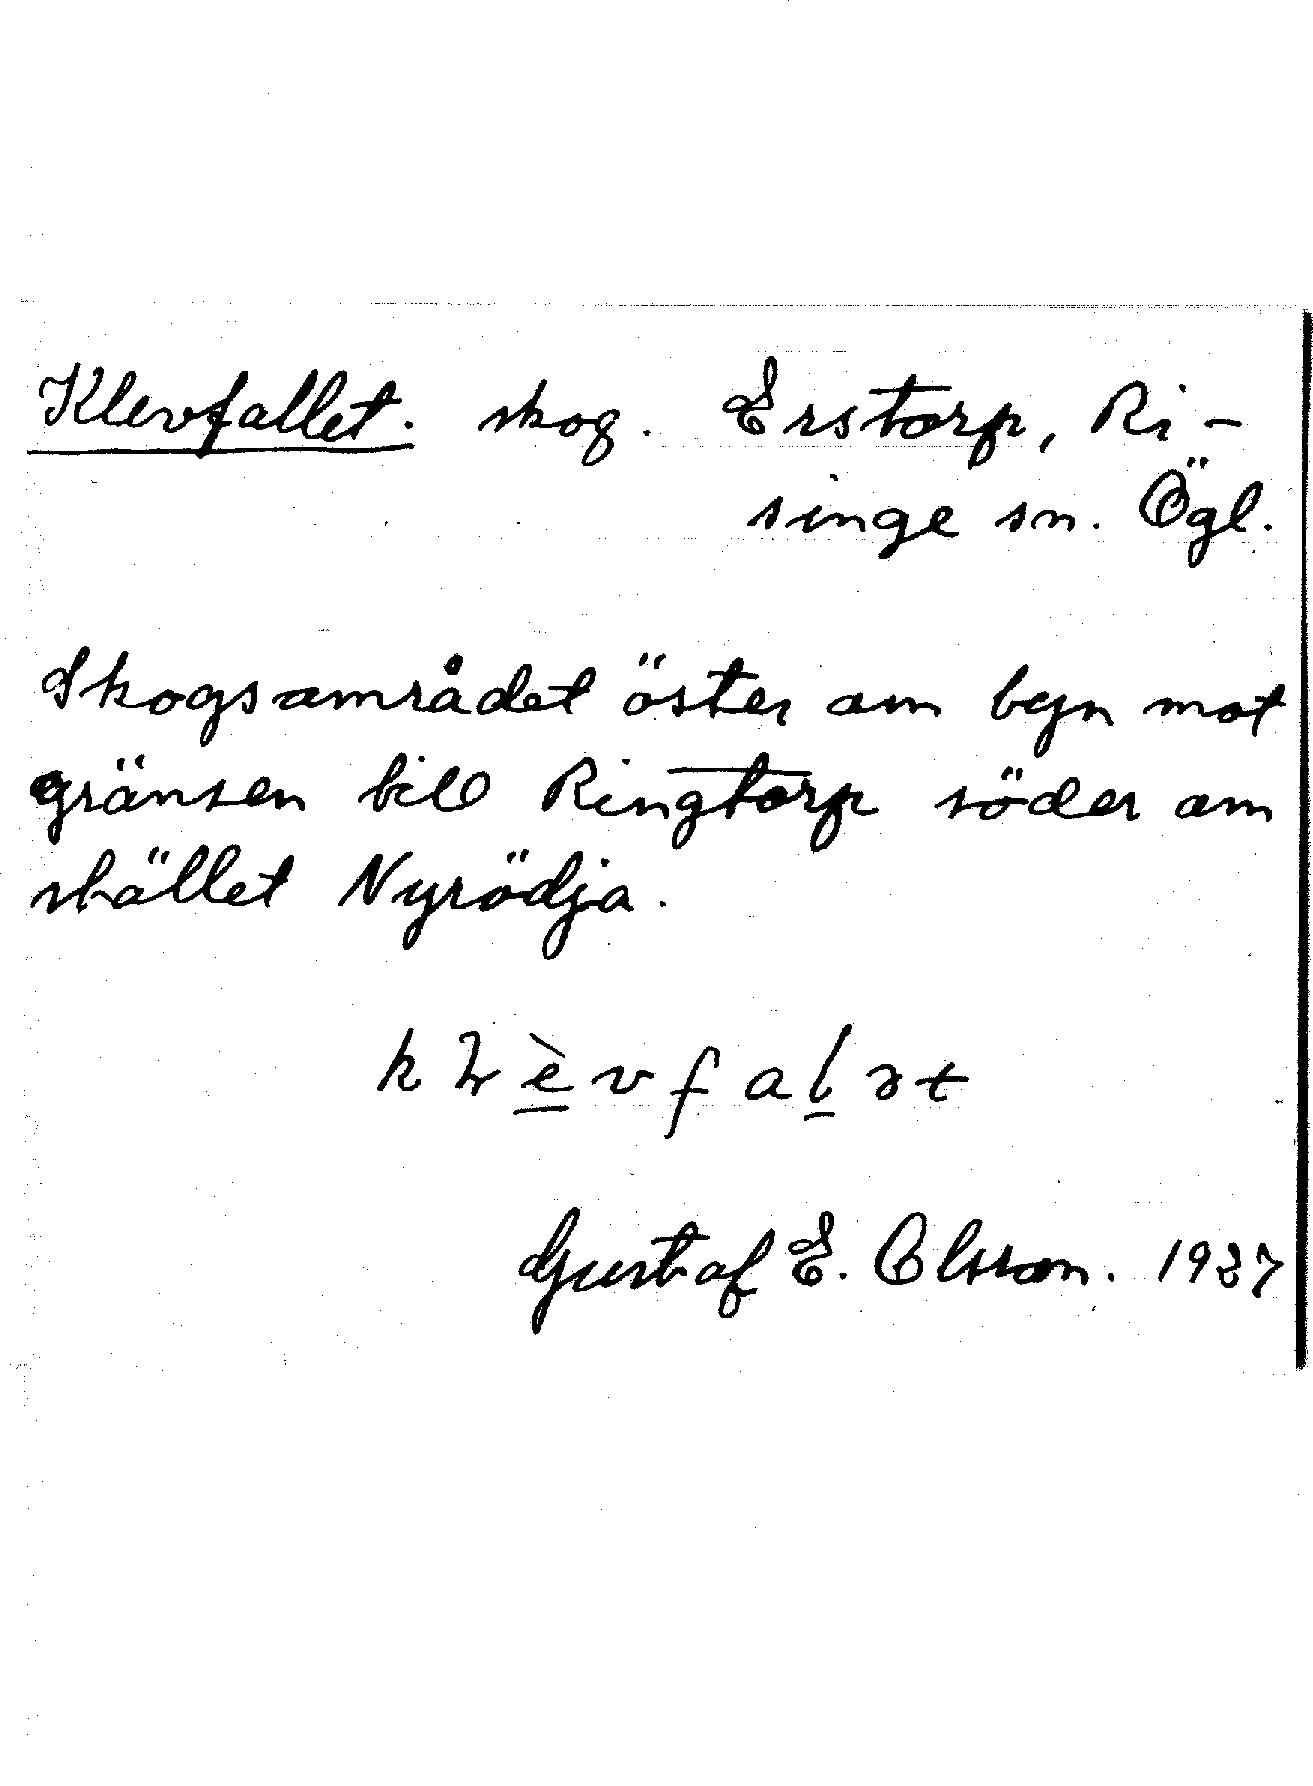 Klevfallet. skog. Erstorp, Ri-
singe sn. Ögl.
Skogsområdet öster om byn mot
gränsen till Ringtorp söder om
skället Nyrödja.
Gustaf E. Olsson. 1937